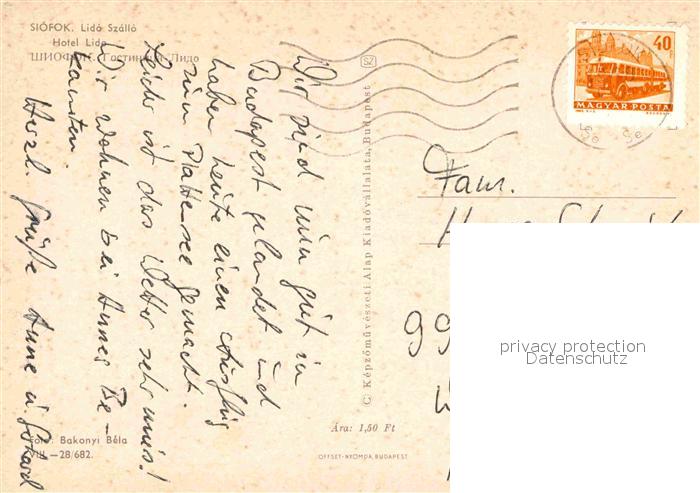 SIÓFOK. Lidó Szálló
Hotel Lido
ШИОФОК. Гостиница Лидо
Wir sind nun gut in
Budapest gelandet und
haben heute einen Ausflug
zum Plattensee gemacht.
Leider ist das Wetter sehr mies!
Wir wohnen bei Annes Be-
kannten.
Herzl. Grüße Anne u. Gotard
Foto: Bakonyi Béla
VIII.—28/682.
SZ
© Képzőművészeti Alap Kiadóvállalata, Budapest
Ára: 1,50 Ft
OFFSET-NYOMDA, BUDAPEST
40
MAGYAR POSTA
Fam.
99
privacy protection
Datenschutz